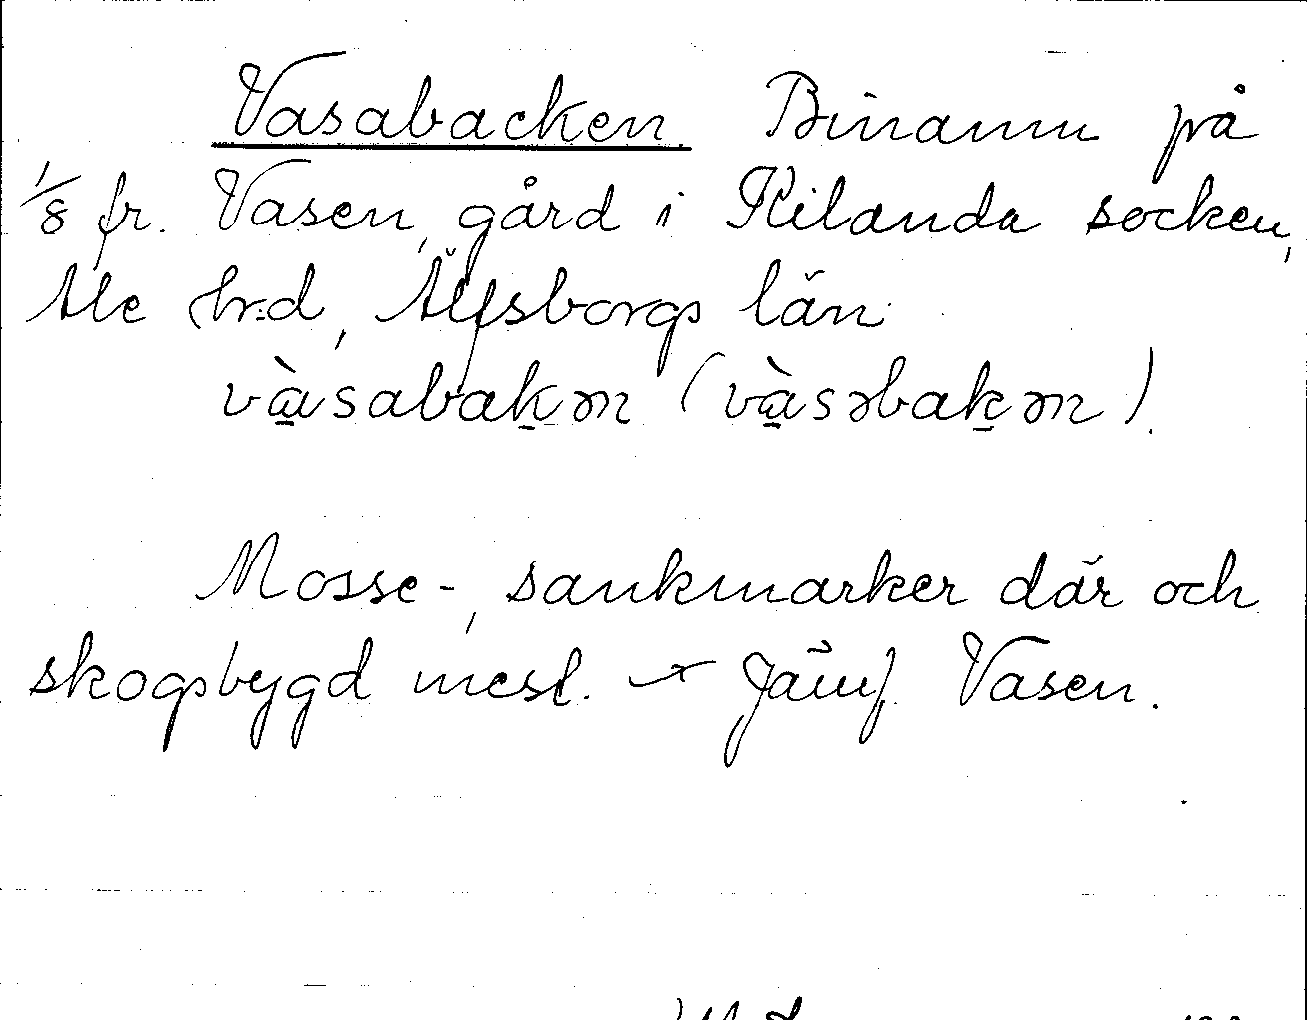 Vasabacken. Binamn på
1/8 fr. Vasen, gård i Kilanda socken,
Ale hrd, Älfsborgs län.
và̱sabaḵən (và̱səbaḵən).
Mosse-, sankmarker där och
skogsbygd mest. Jämf. Vasen.